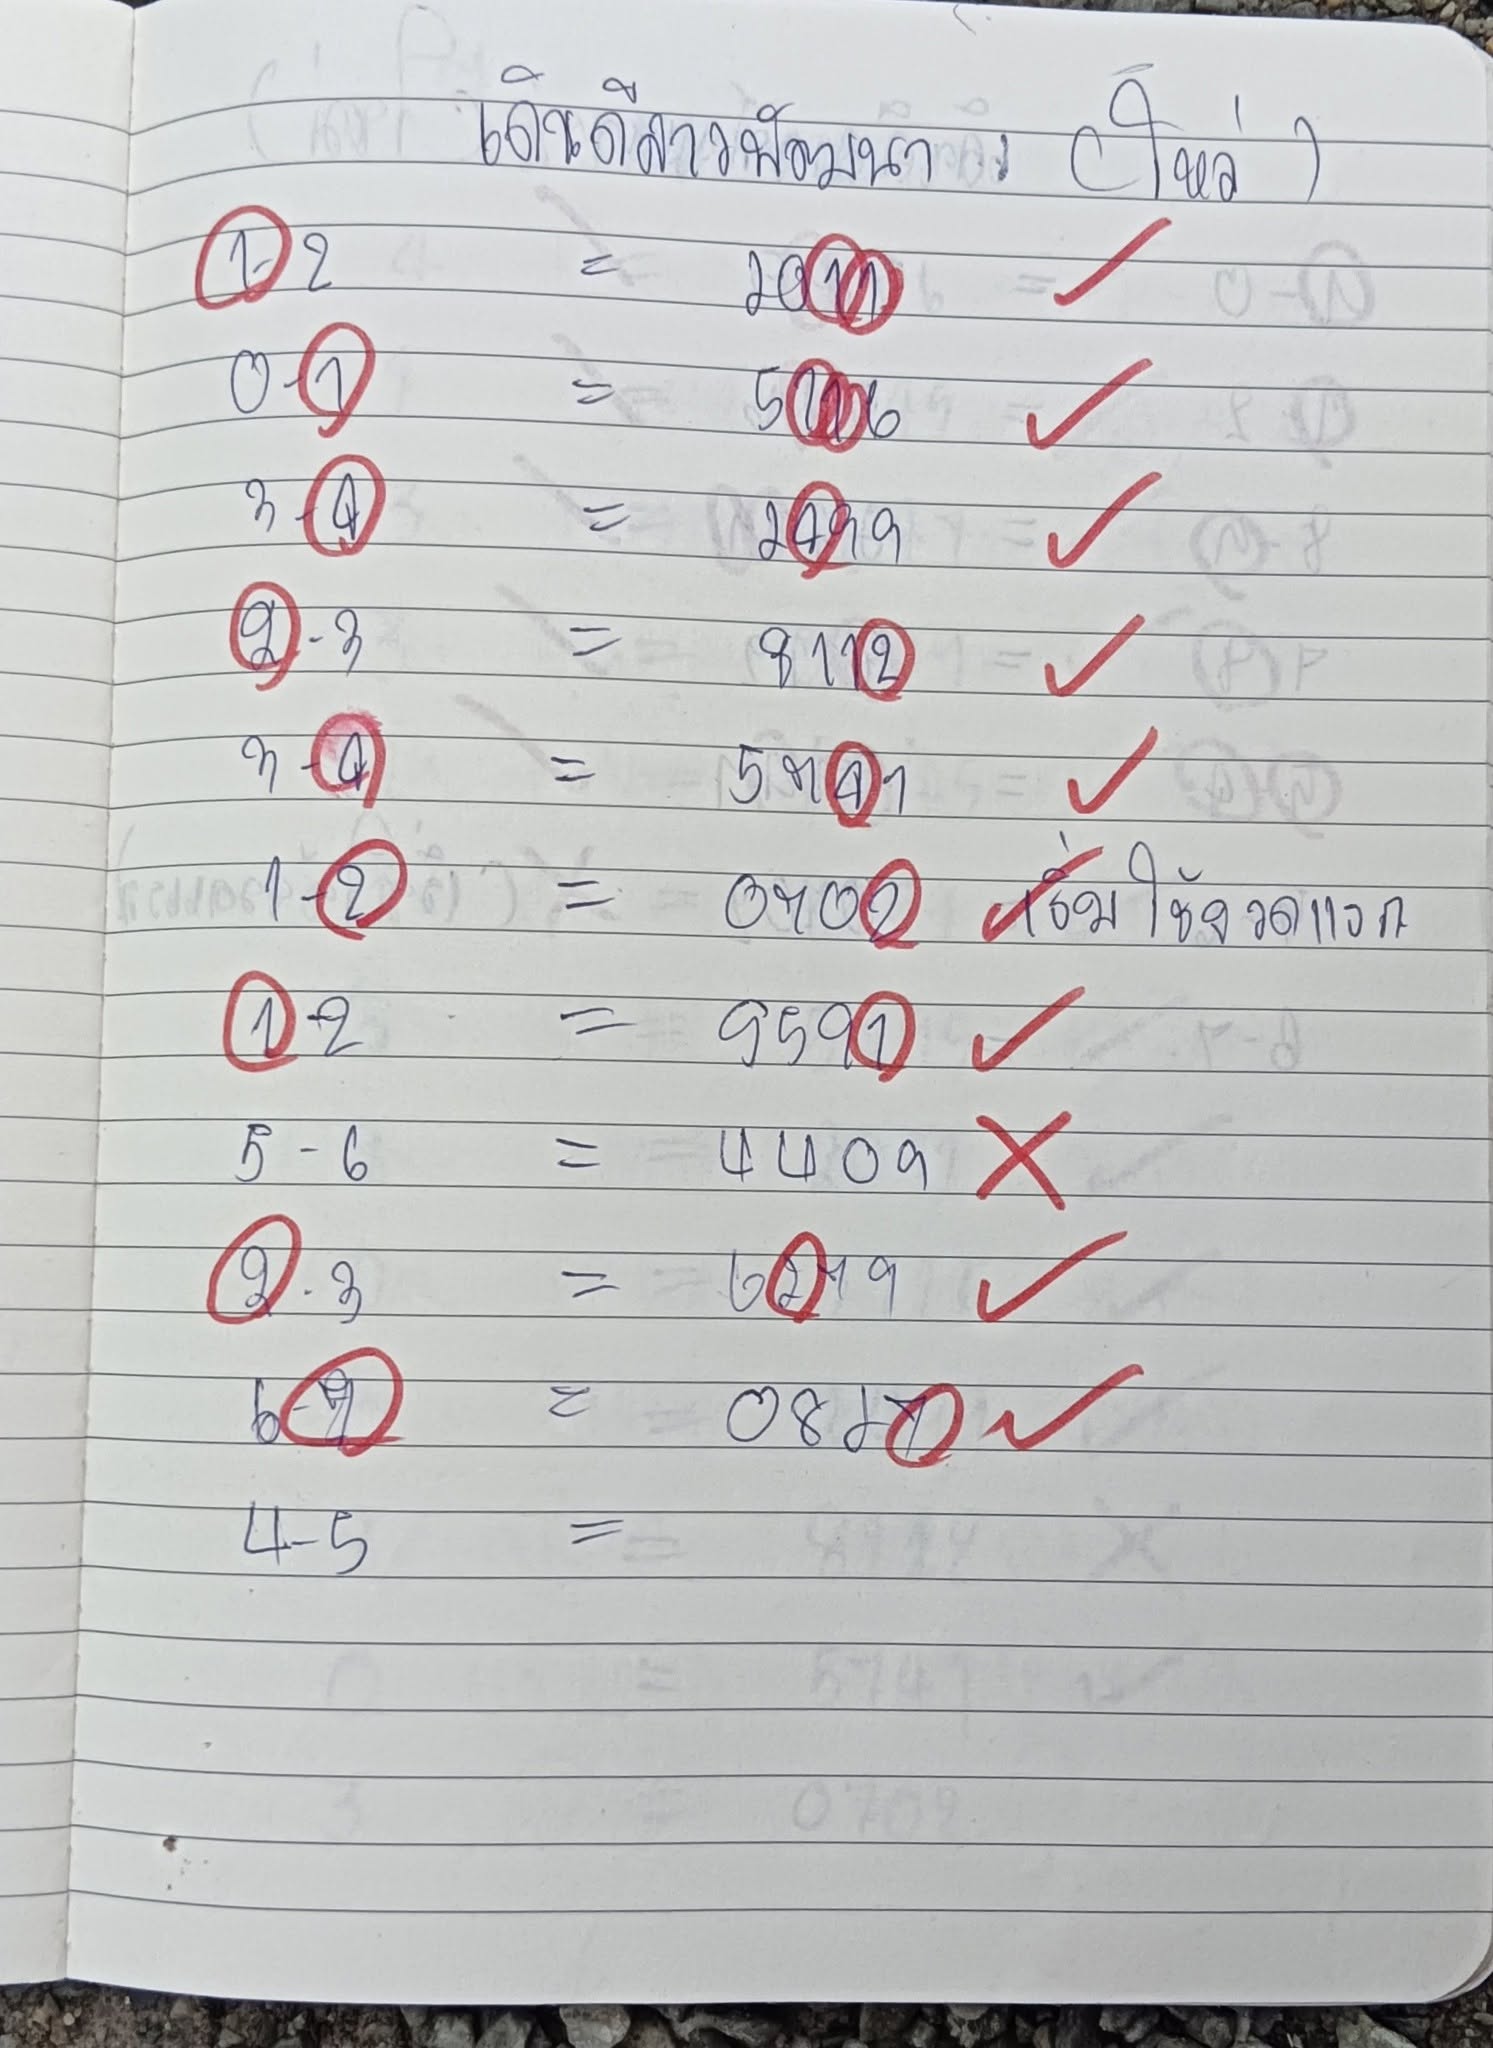 เดินดีลาวพัฒนา (ใหล่)
1-2 = 2011
0-1 = 5116
3-4 = 2499
2-3 = 8112
3-4 = 5741
1-2 = 0702 เริ่มใช้งวดแรก
1-2 = 9591
5-6 = 4409
2-3 = 6279
6-7 = 0827
4-5 =